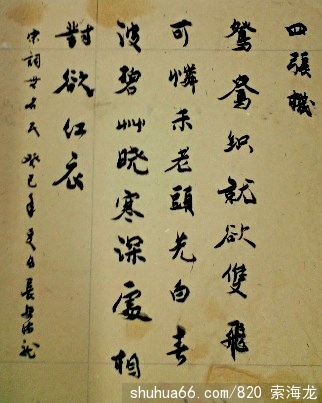 四張機
鴛鴦織就欲雙飛
可憐未老頭先白春
波碧艸曉寒深處相
對欲红衣
宋詞 癸巳年夏日長安海龙
shuhua66.com/820 索海龙